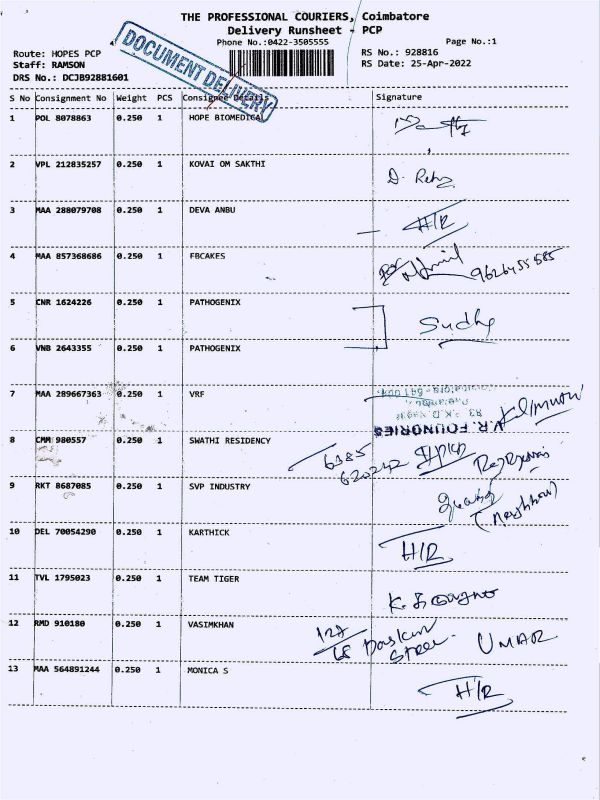 THE PROFESSIONAL COURIERS, Coimbatore
Delivery Runsheet - PCP
Phone No.:0422-3505555
Page No.:1
Route: HOPES PCP
RS No.: 928816
Staff: RAMSON
RS Date: 25-Apr-2022
DRS No.: DCJB92881601
DOCUMENT DELIVERY
S No Consignment No Weight PCS Consignee Details Signature
1 POL 8078863 0.250 1 HOPE BIOMEDICAL
2 VPL 212835257 0.250 1 KOVAI OM SAKTHI
3 MAA 288079708 0.250 1 DEVA ANBU H/R
4 MAA 857368686 0.250 1 FBCAKES
5 CNR 1624226 0.250 1 PATHOGENIX Sudhe
6 VNB 2643355 0.250 1 PATHOGENIX
7 MAA 289667363 0.250 1 VRF
V.R. FOUNDRIES
8 CMM 980557 0.250 1 SWATHI RESIDENCY
6385
620242
9 RKT 8687085 0.250 1 SVP INDUSTRY
(Neighbour)
10 DEL 70054290 0.250 1 KARTHICK H/R
11 TVL 1795023 0.250 1 TEAM TIGER
12 RMD 910180 0.250 1 VASIMKHAN UMAR
13 MAA 564891244 0.250 1 MONICA S H/R